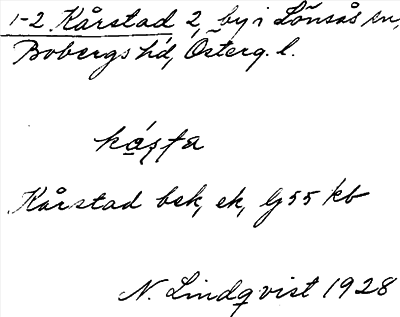 1-2 Kårstad 2, by i Lönsås sn,
Bobergs hd, Österg. l.
Kårstad bsk, ek, Gj 55 kb
N. Lindqvist 1928